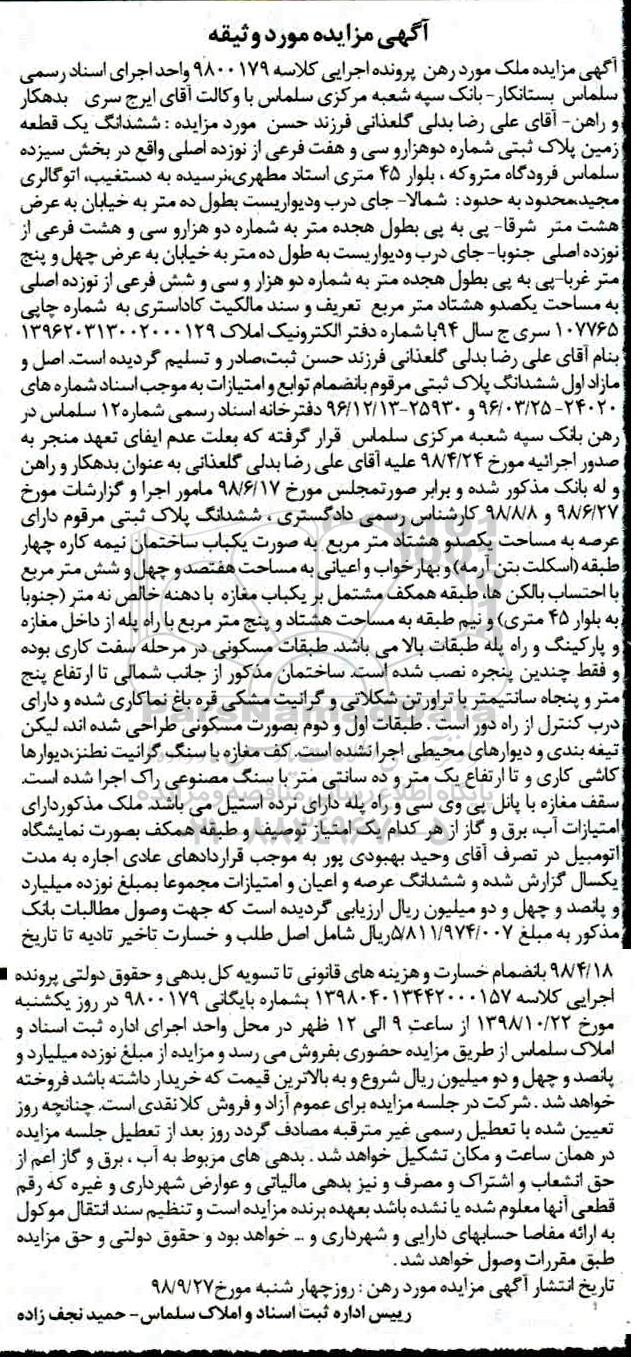 آگهی مزایده مورد وثیقه
آگهی مزایده ملک مورد رهن پرونده اجرایی کلاسه ۹۸۰۰۱۷۹ واحد اجرای اسناد رسمی
سلماس بستانکار- بانک سپه شعبه مرکزی سلماس با وکالت آقای ایرج سری بدهکار
و راهن- آقای علی رضا بدلی گلعذانی فرزند حسن مورد مزایده : ششدانگ یک قطعه
زمین پلاک ثبتی شماره دوهزارو سی و هفت فرعی از نوزده اصلی واقع در بخش سیزده
سلماس فرودگاه متروکه ، بلوار ۴۵ متری استاد مطهری،نرسیده به دستغیب، اتوگالری
مجید،محدود به حدود : شمالا- جای درب ودیواریست بطول ده متر به خیابان به عرض
هشت متر شرقا- پی به پی بطول هجده متر به شماره دو هزارو سی و هشت فرعی از
نوزده اصلی جنوبا- جای درب ودیواریست به طول ده متر به خیابان به عرض چهل و پنج
متر غربا-پی به پی بطول هجده متر به شماره دو هزار و سی و شش فرعی از نوزده اصلی
به مساحت یکصدو هشتاد متر مربع تعریف و سند مالکیت کاداستری به شماره چاپی
۱۰۷۷۶۵ سری ج سال ۹۴با شماره دفتر الکترونیک املاک ۱۳۹۶۲۰۳۱۳۰۰۲۰۰۰۱۲۹
بنام آقای علی رضا بدلی گلعذانی فرزند حسن ثبت،صادر و تسلیم گردیده است. اصل و
مازاد اول ششدانگ پلاک ثبتی مرقوم بانضمام توابع و امتیازات به موجب اسناد شماره های
۲۴۰۲۰- ۹۶/۰۳/۲۵ و ۲۵۹۳۰-۹۶/۱۲/۱۳ دفترخانه اسناد رسمی شماره۱۲ سلماس در
رهن بانک سپه شعبه مرکزی سلماس قرار گرفته که بعلت عدم ایفای تعهد منجر به
صدور اجرائیه مورخ ۹۸/۴/۲۴ علیه آقای علی رضا بدلی گلعذانی به عنوان بدهکار و راهن
و له بانک مذکور شده و برابر صورتمجلس مورخ ۹۸/۶/۱۷ مامور اجرا و گزارشات مورخ
۹۸/۶/۲۷ و ۹۸/۸/۸ کارشناس رسمی دادگستری ، ششدانگ پلاک ثبتی مرقوم دارای
عرصه به مساحت یکصدو هشتاد متر مربع به صورت یکباب ساختمان نیمه کاره چهار
طبقه (اسکلت بتن آرمه) و بهارخواب و اعیانی به مساحت هفتصد و چهل و شش متر مربع
با احتساب بالکن ها، طبقه همکف مشتمل بر یکباب مغازه با دهنه خالص نه متر (جنوبا
به بلوار ۴۵ متری) و نیم طبقه به مساحت هشتاد و پنج متر مربع با راه پله از داخل مغازه
و پارکینگ و راه پله طبقات بالا می باشد. طبقات مسکونی در مرحله سفت کاری بوده
و فقط چندین پنجره نصب شده است. ساختمان مذکور از جانب شمالی تا ارتفاع پنج
متر و پنجاه سانتیمتر با تراورتن شکلاتی و گرانیت مشکی قره باغ نماکاری شده و دارای
درب کنترل از راه دور است . طبقات اول و دوم بصورت مسکونی طراحی شده اند، لیکن
تیغه بندی و دیوارهای محیطی اجرا نشده است. کف مغازه با سنگ گرانیت نطنز،دیوارها
کاشی کاری و تا ارتفاع یک متر و ده سانتی متر با سنگ مصنوعی راک اجرا شده است.
سقف مغازه با پانل پی وی سی و راه پله دارای نرده استیل می باشد. ملک مذکوردارای
امتیازات آب، برق و گاز از هر کدام یک امتیاز توصیف و طبقه همکف بصورت نمایشگاه
اتومبیل در تصرف آقای وحید بهبودی پور به موجب قراردادهای عادی اجاره به مدت
یکسال گزارش شده و ششدانگ عرصه و اعیان و امتیازات مجموعا بمبلغ نوزده میلیارد
و پانصد و چهل و دو میلیون ریال ارزیابی گردیده است که جهت وصول مطالبات بانک
مذکور به مبلغ ۵/۸۱۱/۹۷۴/۰۰۷ریال شامل اصل طلب و خسارت تاخیر تادیه تا تاریخ
۹۸/۴/۱۸ بانضمام خسارت و هزینه های قانونی تا تسویه کل بدهی و حقوق دولتی پرونده
اجرایی کلاسه ۱۳۹۸۰۴۰۱۳۴۴۲۰۰۰۱۵۷ بشماره بایگانی ۹۸۰۰۱۷۹ در روز یکشنبه
مورخ ۱۳۹۸/۱۰/۲۲ از ساعت ۹ الی ۱۲ ظهر در محل واحد اجرای اداره ثبت اسناد و
املاک سلماس از طریق مزایده حضوری بفروش می رسد و مزایده از مبلغ نوزده میلیارد و
پانصد و چهل و دو میلیون ریال شروع و به بالاترین قیمت که خریدار داشته باشد فروخته
خواهد شد . شرکت در جلسه مزایده برای عموم آزاد و فروش کلا نقدی است. چنانچه روز
تعیین شده با تعطیل رسمی غیر مترقبه مصادف گردد روز بعد از تعطیل جلسه مزایده
در همان ساعت و مکان تشکیل خواهد شد . بدهی های مربوط به آب ، برق و گاز اعم از
حق انشعاب و اشتراک و مصرف و نیز بدهی مالیاتی و عوارض شهرداری و غیره که رقم
قطعی آنها معلوم شده یا نشده باشد بعهده برنده مزایده است و تنظیم سند انتقال موکول
به ارائه مفاصا حسابهای دارایی و شهرداری و ... خواهد بود و حقوق دولتی و حق مزایده
طبق مقررات وصول خواهد شد .
تاریخ انتشار آگهی مزایده مورد رهن : روزچهار شنبه مورخ۹۸/۹/۲۷
رییس اداره ثبت اسناد و املاک سلماس- حمید نجف زاده
ParsNamadData
پایگاه اطلاع رسانی مناقصه و مزایده
۰۲۱-۸۸۳۴۹۶۷۰-۵